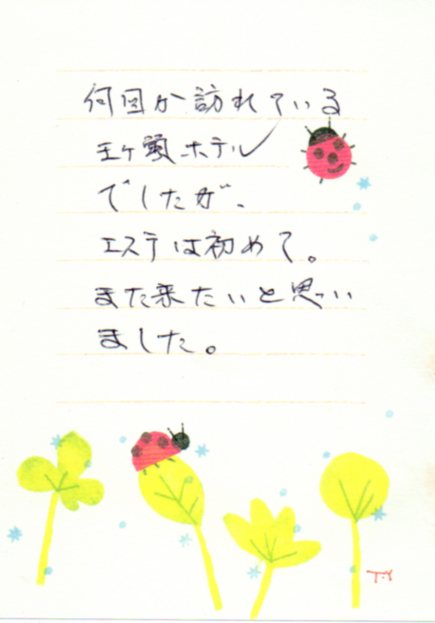 何回か訪れている
王ヶ頭ホテル
でしたが、
エステは初めて。
また来たいと思い
ました。
T.Y